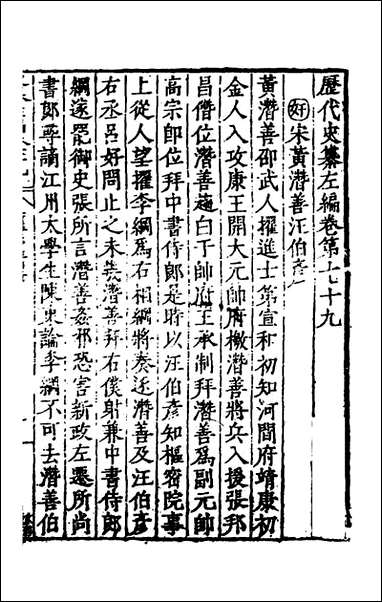 歷代史纂左編卷第七十九
奸宋黃潛善汪伯彥
黃潛善邵武人擢進士第宣和初知河間府靖康初
金人入攻康王開大元帥府檄潛善將兵入援張邦
昌僭位潛善趨白于帥府王承制拜潛善爲副元帥
高宗即位拜中書侍郎是時以汪伯彥知樞密院事
上從人望擢李綱爲右相綱將奏逐潛善及汪伯彥
右丞呂好問止之未幾潛善拜右僕射兼中書侍郎
綱遂罷御史張所言潛善姦邪恐害新政左遷所尚
書郎尋謫江州太學生陳東論李綱不可去潛善伯